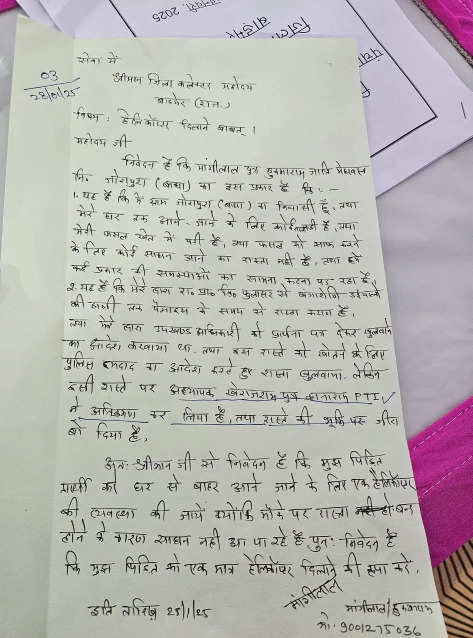 जनवरी, 2025
जिला
बाड़मेर
सेवा में
03
28/01/25
श्रीमान जिला कलेक्टर महोदय
बाडमेर (राज.)
विषय : हेलिकॉप्टर दिलाने बाबत् ।
महोदय जी
निवेदन हैं कि मांगीलाल पुत्र हुकमाराम जाति मेघवाल
नि. जोरापुरा (बाछा) का इस प्रकार हैं कि : -
1. यह हैं कि मैं ग्राम जोरापुरा (बाछा) का निवासी हूँ, तथा
मेरे घर तक आने-जाने के लिए कोई नही हैं, तथा
मेरी फसल खेत में पड़ी हैं, तथा फसल को साफ करने
के लिए कोई साधन आने का रास्ता नही हैं, तथा
कई प्रकार की समस्याओं का सामना करना पड़ रहा हैं,
2. यह हैं कि मेरे द्वारा रा० प्रा० वि०
की ढाणी तक के समय से रास्ता कायम हैं,
तथा मेरे द्वारा उपखण्ड अधिकारी को प्रार्थना पत्र देकर खुलवाने
का आदेश करवाया था. तथा इस रास्ते को खोलने के लिए
पुलिस इमदाद का आदेश करते हुए रास्ता खुलवाया. लेकिन
इसी रास्ते पर अध्यापक खेराजराम पुत्र कानाराम PTI
ने अतिक्रमण कर लिया हैं, तथा रास्ते की भूमि पर जीरा
बो दिया हैं,
अतः श्रीमान जी से निवेदन हैं कि मुझ पिडित
प्रार्थी को घर से बाहर आने जाने के लिए एक हेलिकॉप्टर
की व्यवस्था की जायें क्योंकि मौके पर रास्ता बन्द
होने के कारण साधन नही आ पा रहे हैं पुनः निवेदन हैं
कि मुझ पिडित को एक मात्र हेलिकॉप्टर दिलाने की कृपा करें.
मांगीलाल
इति तारिख 25/1/25
मांगीलाल / हुकमाराम
मो. 9001275036